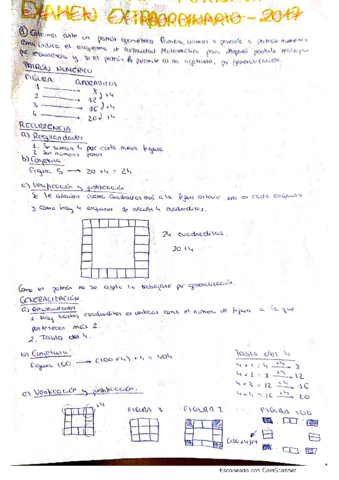 EXAMEN EXTRAORDINARIO - 2017
① Estamos ante un patrón geométrico. Primero, vamos a pasarlo a patrón numérico
como indica el esquema de Actividad Matemática para después poderlo trabajar
por recurrencia y, si el patrón lo permite es no replicado, por generalización.
PATRÓN NUMÉRICO
FIGURA CUADRADITOS
1 → 8
2 → 12 +4
3 → 16 +4
4 → 20 +4
RECURRENCIA
a) Regularidades
1. Se suman 4 por cada nueva figura
2. Son números pares
b) Conjetura
Figura 5 → 20 + 4 = 24
c) Verificación y justificación
Se le añaden cuatro cuadrados más a la figura anterior, uno en cada esquina
y como hay 4 esquinas se añaden 4 cuadraditos.
24 cuadraditos.
20+4
Como el patrón no se replica lo trabajaré por generalización.
GENERALIZACIÓN.
a) Regularidades
1. Hay tantos cuadraditos en verticales como el número de figura a la que
pertenecen más 2.
2. Tabla del 4.
b) Conjetura
Figura 100 → (100×4) + 4 = 404
Tabla del 4
4×1 = 4 +4→ 8
4×2 = 8 +4→ 12
4×3 = 12 +4→ 16
4×4 = 16 +4→ 20
c) Verificación y justificación.
+4
FIGURA 1
FIGURA 2
...
FIGURA 100
(100×4)+4
Escaneado con CamScanner